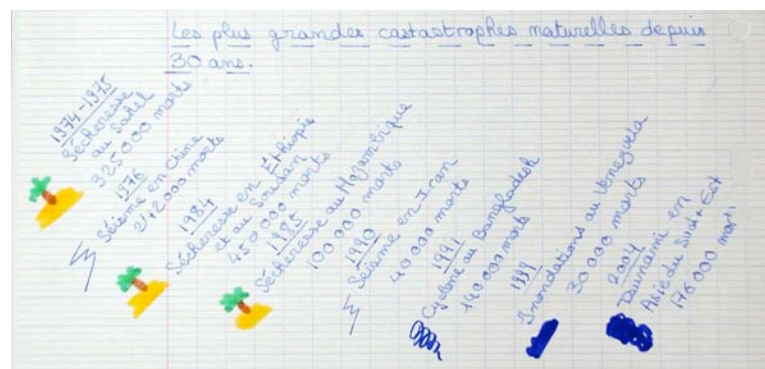 Les plus grandes castastrophes naturelles depuis
30 ans.
1974-1975
Sécheresse
au Sahel
325000 morts
1976
Séisme en Chine
242000 morts
1984
Sécheresse en Éthiopie
et au Soudan
450000 morts
1985
Sécheresse au Mozambique
100000 morts
1990
Séisme en Iran
40000 morts
1991
Cyclone au Bangladesh
140000 morts
1999
Inondations au Venezuela
30000 morts
2004
Tsunami en
Asie du Sud-Est
176000 morts